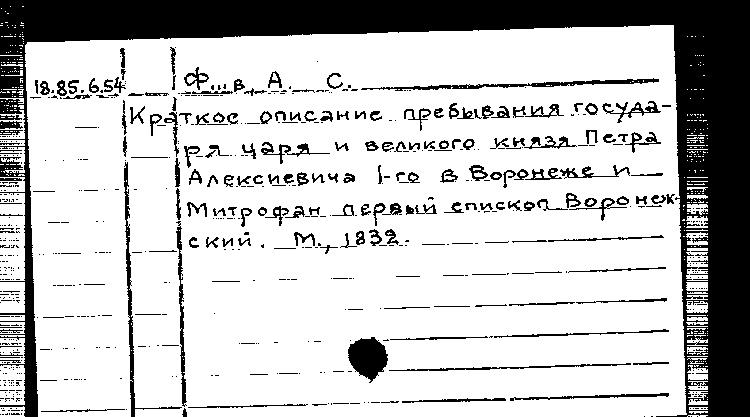 18.85.6.54 Ф...в, А. С.
Краткое описание пребывания госуда-
ря царя и великого князя Петра
Алексиевича I-го в Воронеже и
Митрофан первый епископ Воронеж-
ский. М., 1832.